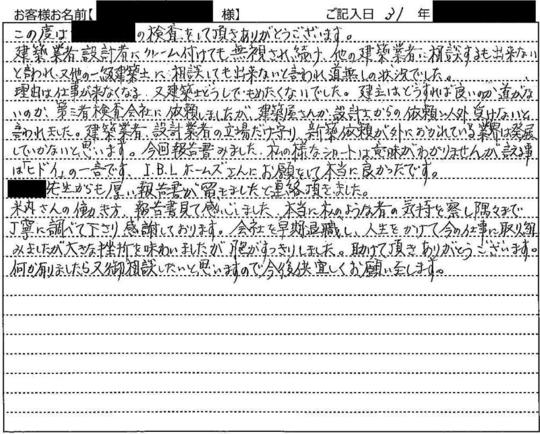 お客様お名前【 様】 ご記入日 31 年
この度は の検査をして頂きありがとうございます。
建築業者、設計者にクレーム付けても無視され続け、他の建築業者に相談するも出来ない
と言われ、又他の一級建築士に相談しても出来ないと言われ、道無しの状況でした。
理由は仕事が来なくなる、又建築士どうしでもめたくないでした。建主はどうすれば良いのか、道がな
いのか、第三者検査会社に依頼しましたが、建築屋さんか設計士からの依頼以外受けないと
言われました。建築業者、設計業者の立場だけ守り、新築依頼が外におかれている業界は発展
していかないと思います。今回報告書みました、私の様なシロートは意味がわかりませんが
は「ヒドイ」の一言です、I.B.Lホームズさんにお願いをして本当に良かったです。
先生からも厚い報告書が届きましたと連絡頂きました。
米内さんの働き方、報告書見て感じました、本当に私のような者の気持を察し隅々まで
丁寧に調べて下さり感謝しております。会社を早期退職し、人生をかけて今の仕事に取り組
みましたが大きな挫折を味わいましたが、肥がすっきりしました。助けて頂きありがとうございます。
何か有りましたら又御相談したいと思いますので今後共宜しくお願い致します。